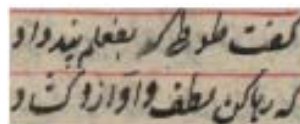 کفت طوطی کو بفعلم پند داد
که رها کن لطف و آواز و کشاد